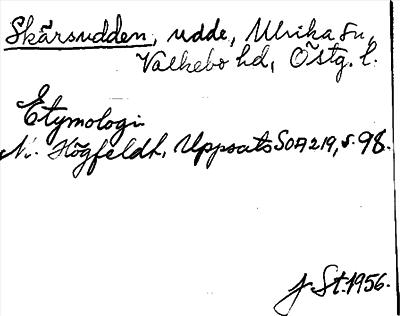 Skärsudden, udde, Ulrika sn,
Valkebo hd, Östg. l.
Etymologi
N. Högfeldt, Uppsats SOA 219, s. 98.
J. St. 1956.